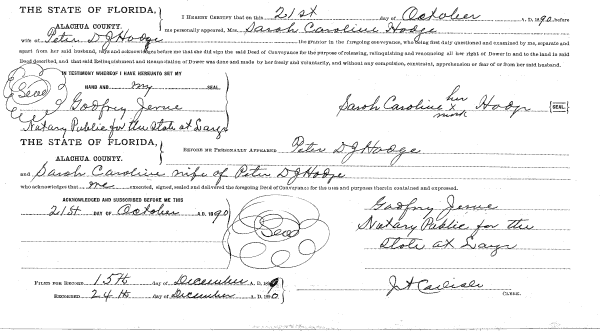 THE STATE OF FLORIDA,
ALACHUA COUNTY.
I HEREBY CERTIFY that on this 21st day of October A. D. 1890, before
me personally appeared, Mrs. Sarah Caroline Hodge
wife of Peter D J Hodge the grantor in the foregoing conveyance, who being first duly questioned and examined by me, separate and
apart from her said husband, says and acknowledges before me that she did sign the said Deed of Conveyance for the purpose of releasing, relinquishing and renouncing all her right of Dower in and to the land in said
Deed described, and that said Relinquishment and Renunciation of Dower was done and made by her freely and voluntarily, and without any compulsion, constraint, apprehension or fear of or from her said husband.
IN TESTIMONY WHEREOF I HAVE HEREUNTO SET MY
HAND AND my SEAL
Seal
Godfrey
Notary Public for the State at Large
Sarah Caroline her x mark Hodge [SEAL]
THE STATE OF FLORIDA,
ALACHUA COUNTY.
BEFORE ME PERSONALLY APPEARED Peter D J Hodge
and Sarah Caroline wife of Peter D J Hodge
who acknowledges that executed, signed, sealed and delivered the foregoing Deed of Conveyance for the uses and purposes therein contained and expressed.
ACKNOWLEDGED AND SUBSCRIBED BEFORE ME THIS
21st DAY OF October A. D. 1890
Seal
Godfrey
Notary Public for the
State at Large
FILED FOR RECORD 15th day of December A. D. 1890
RECORDED 24th day of December A. D. 1890
CLERK.